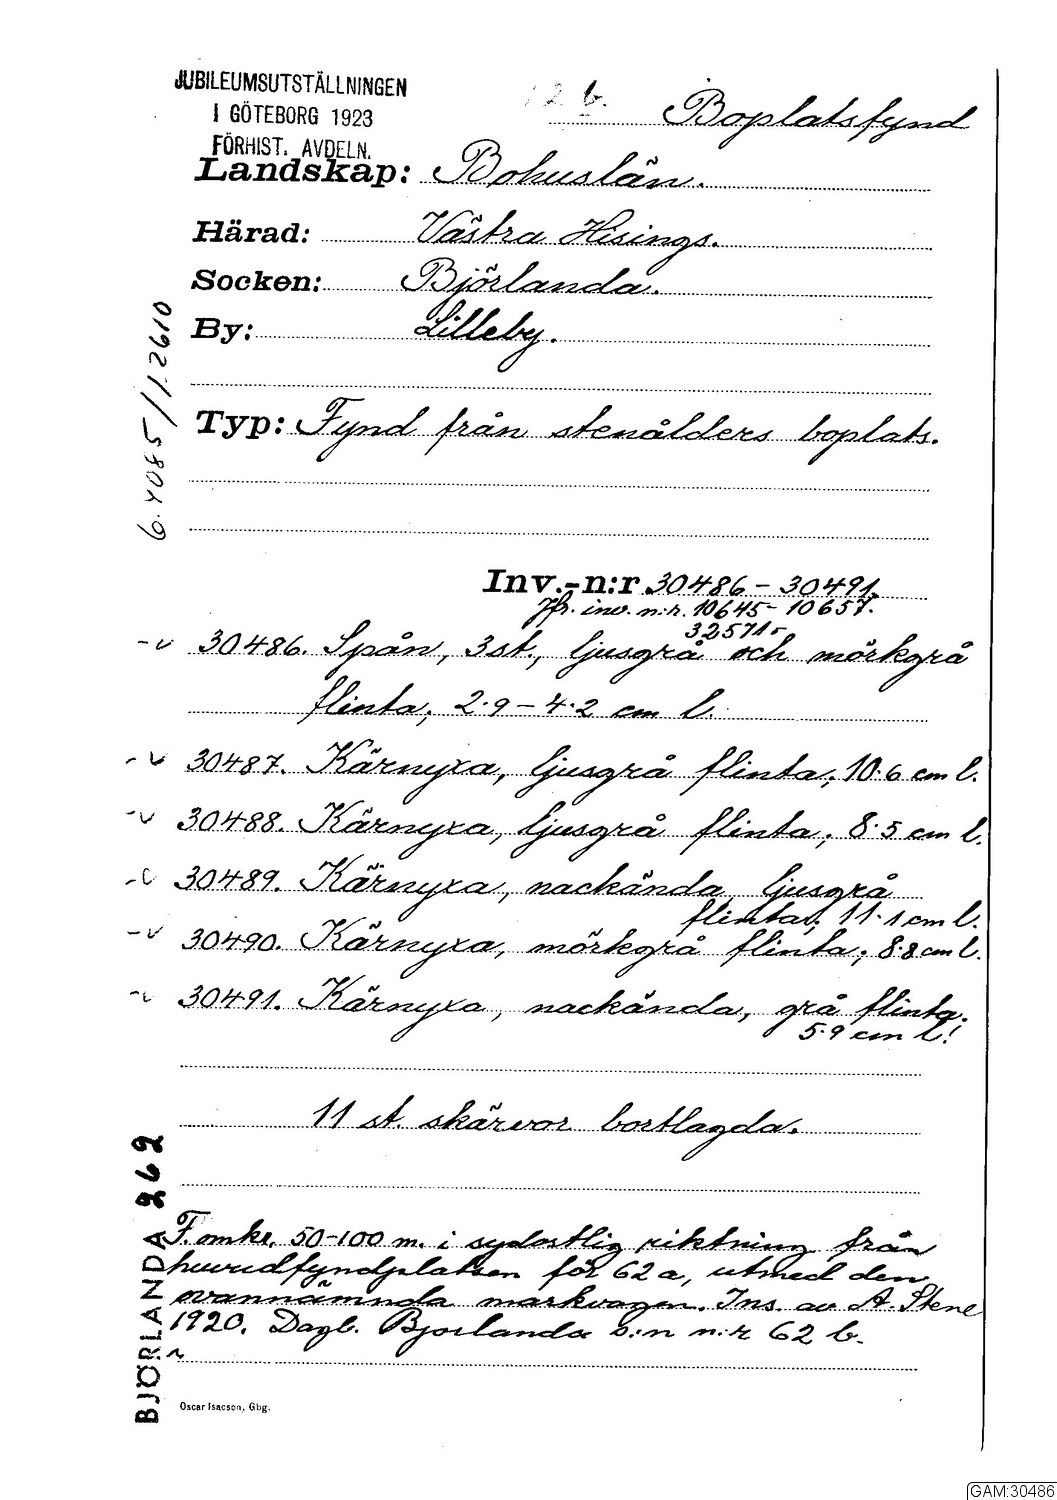 JUBILEUMSUTSTÄLLNINGEN
I GÖTEBORG 1923
FÖRHIST. AVDELN.
2 b. Boplatsfynd
Landskap: Bohuslän.
Härad: Västra Hisings.
Socken: Björlanda.
By: Lilleby.
6.4085/1.2610
Typ: Fynd från stenålders boplats.
Inv.-n:r 30486 - 30491.
Jfr. inv. n:r. 10645 - 10657.
32571-
30486. Spån, 3 st., ljusgrå och mörkgrå
flinta; 2.9 - 4.2 cm l.
30487. Kärnyxa, ljusgrå flinta; 10.6 cm l.
30488. Kärnyxa, ljusgrå flinta; 8.5 cm l.
30489. Kärnyxa, nackända, ljusgrå
flinta; 11.1 cm l.
30490. Kärnyxa, mörkgrå flinta; 8.8 cm l.
30491. Kärnyxa, nackända, grå flinta;
5.9 cm l!
11 st. skärvor bortlagda.
BJÖRLANDA 262
F. omkr. 50-100 m. i sydostlig riktning från
huvudfyndplatsen för 62 a, utmed den
ovannämnda markvägen. Ins. av A. Stene
1920. Dagb. Björlanda s:n n:r 62 b.
Oscar Isacson, Gbg.
GAM:30486